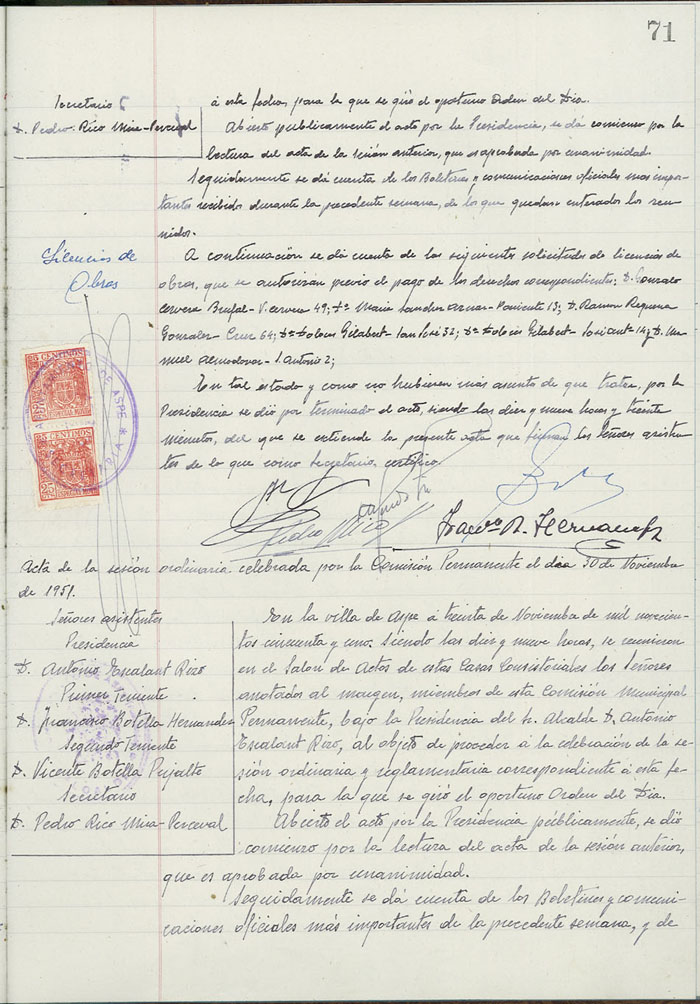 71
Secretario
D. Pedro Rico Mira-Perceval
á esta fecha, para la que se giró el oportuno Orden del Dia.
Abierto públicamente el acto por la Presidencia, se dá comienzo por la
lectura del acta de la sesión anterior, que es aprobada por unanimidad.
Seguidamente se dá cuenta de los Boletines y comunicaciones oficiales mas impor-
tantes recibidos durante la precedente semana, de los que quedaron enterados los reu-
nidos.
Licencias de
Obras
A continuación se dá cuenta de las siguientes solicitudes de licencias de
obras, que se autorizan previo el pago de los derechos correspondientes: D. Gonzalo
Cervera Brufal- V. Cervera 49; Dª Maria Sanchez Aznar- Poniente 13; D. Ramon Requena
Gonzalez- Cruz 64; Dª Dolores Gilabert- San José 32; Dª Dolores Gilabert- 14 y D. Ma-
nuel Almodovar- S. Antonio 2;
En tal estado y como no hubieren más asuntos de que tratar, por la
Presidencia se dió por terminado el acto, siendo las diez y nueve horas y treinta
minutos, del que se extiende la presente acta que firman los Señores asisten-
tes de lo que como Secretario, certifico.
5 CENTIMOS
25 CENTIMOS
25
DE ASPE
Pedro Rico
Franco B. Hernandez
Acta de la sesión ordinaria celebrada por la Comisión Permanente el dia 30 de Noviembre
de 1951.
Señores asistentes
Presidencia
D. Antonio Escalant Rizo
Primer Teniente
D. Francisco Botella Hernandez
Segundo Teniente
D. Vicente Botella Perjalte
Secretario
D. Pedro Rico Mira-Perceval
En la villa de Aspe á treinta de Noviembre de mil novecien-
tos cincuenta y uno. Siendo las diez y nueve horas, se reunieron
en el Salon de Actos de estas Casas Consistoriales los Señores
anotados al margen, miembros de esta Comisión Municipal
Permanente, bajo la Presidencia del Sr. Alcalde D. Antonio
Escalant Rizo, al objeto de proceder á la celebración de la se-
sión ordinaria y reglamentaria correspondiente á esta fe-
cha, para la que se giró el oportuno Orden del Dia.
Abierto el acto por la Presidencia públicamente, se dió
comienzo por la lectura del acta de la sesión anterior,
que es aprobada por unanimidad.
Seguidamente se dá cuenta de los Boletines y comuni-
caciones oficiales más importantes de la precedente semana, y de